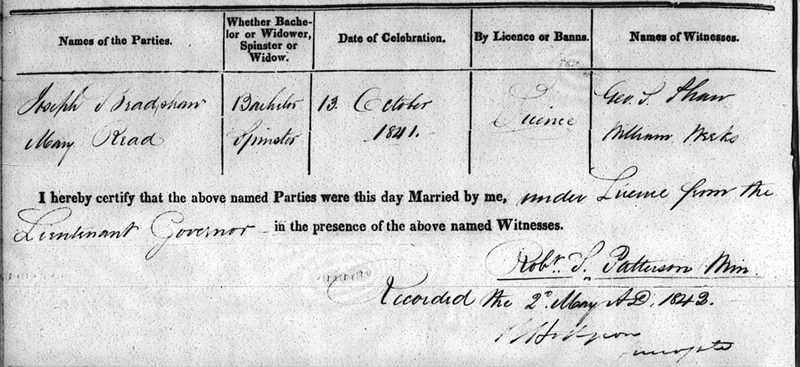 Names of the Parties. Whether Bachelor or Widower, Spinster or Widow. Date of Celebration. By Licence or Banns. Names of Witnesses.
Joseph Bradshaw Bachelor 13 October Licence Geo. S. Shaw
Mary Read Spinster 1841. William Weeks
I hereby certify that the above named Parties were this day Married by me, under Licence from the
Lieutenant Governor in the presence of the above named Witnesses.
Robt. S. Patterson Min.
Recorded the 2d. May A.D. 1843.